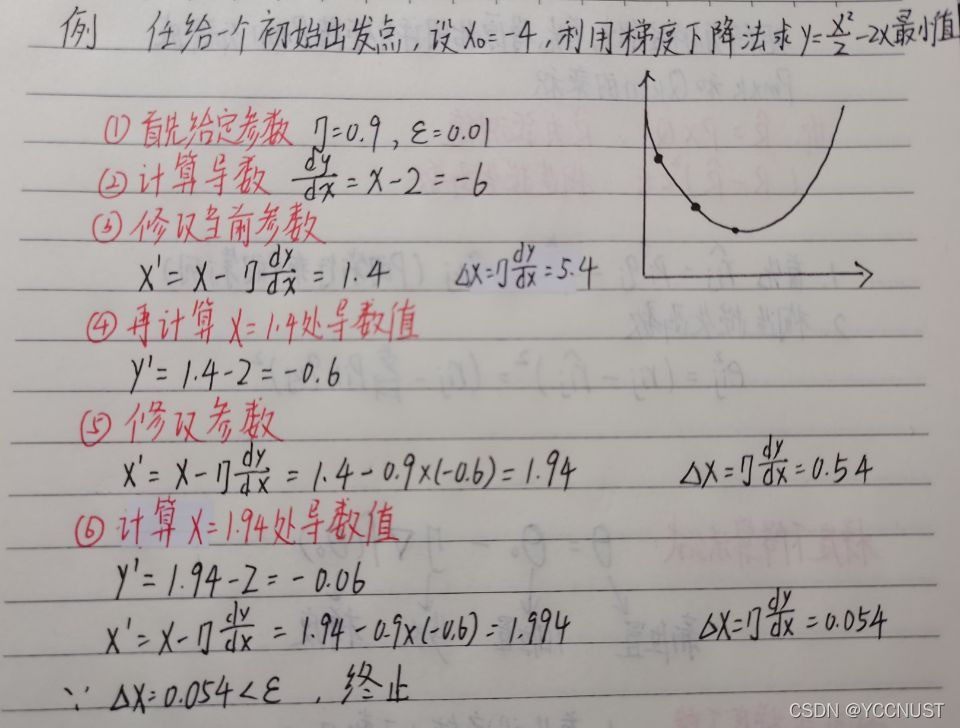 例 任给一个初始出发点,设X₀=-4,利用梯度下降法求y=x²/2-2x最小值
① 首先给定参数 η=0.9, ε=0.01
② 计算导数 dy/dx=x-2=-6
③ 修改当前参数
x'=x-η dy/dx=1.4 Δx=η dy/dx=5.4
④ 再计算x=1.4处导数值
y'=1.4-2=-0.6
⑤ 修改参数
x'=x-η dy/dx=1.4-0.9×(-0.6)=1.94 Δx=η dy/dx=0.54
⑥ 计算x=1.94处导数值
y'=1.94-2=-0.06
x'=x-η dy/dx=1.94-0.9×(-0.6)=1.994 Δx=η dy/dx=0.054
∵ Δx=0.054<ε ,终止
CSDN @YCCNUST